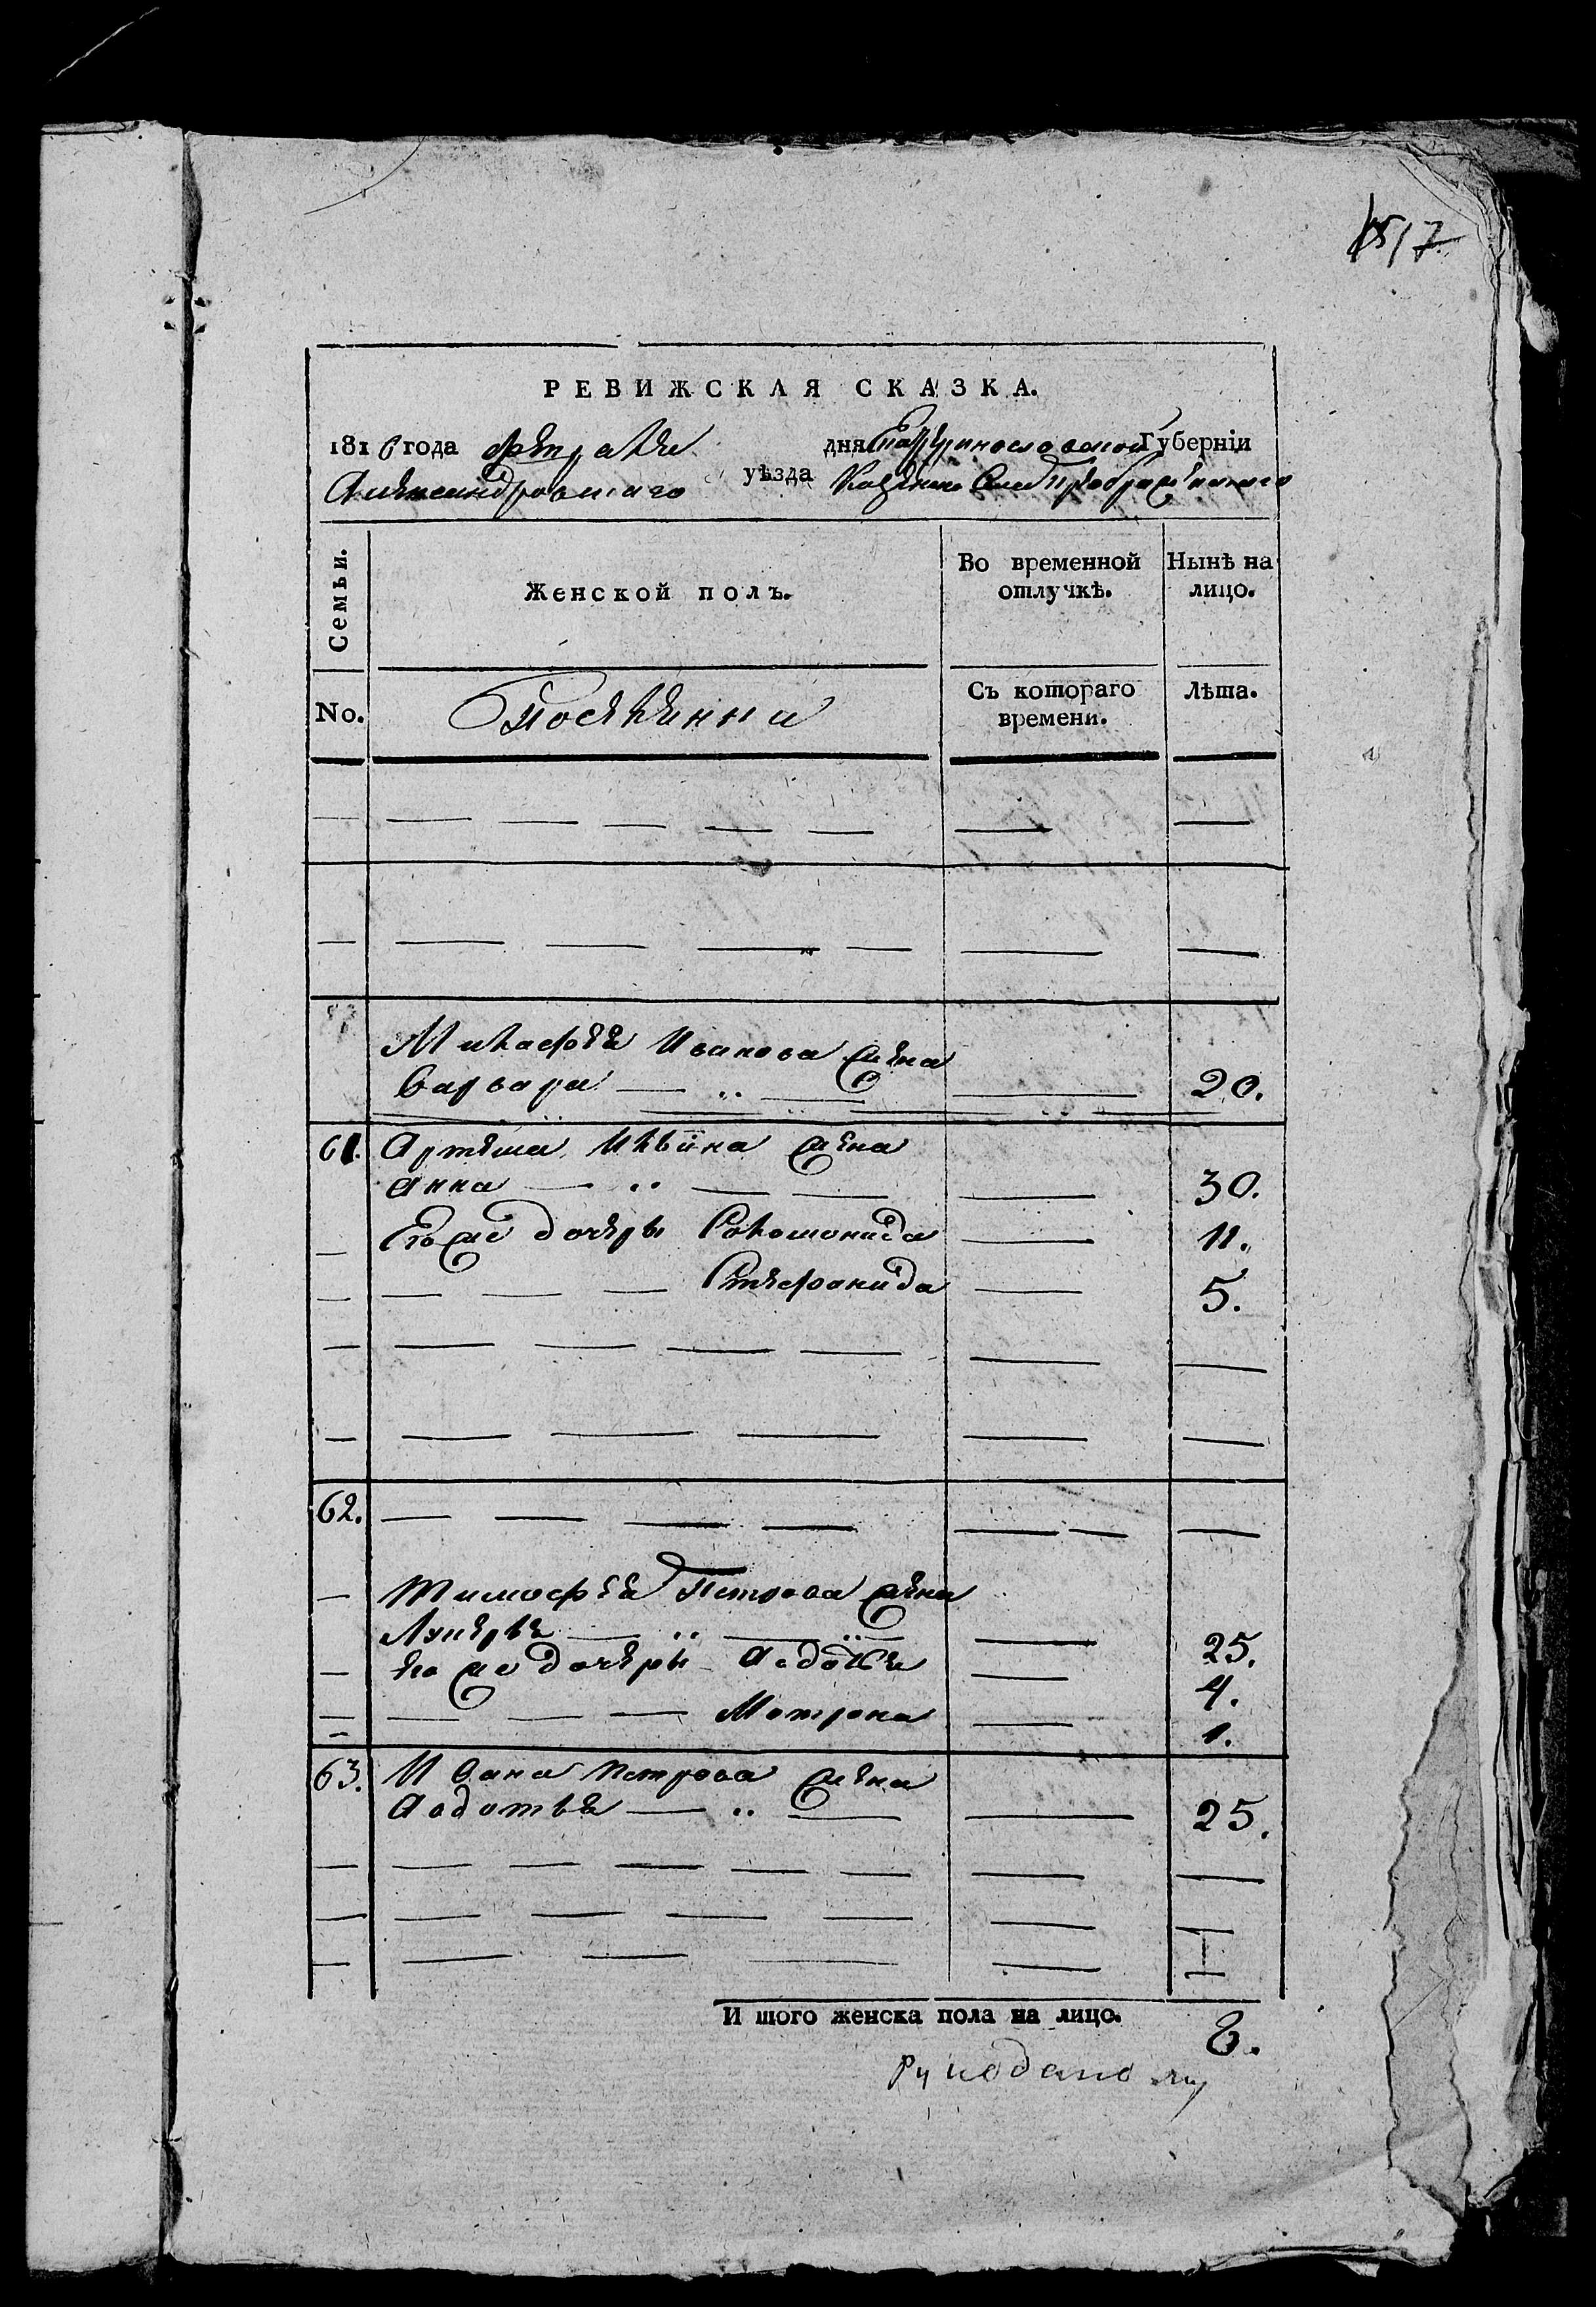 17
РЕВИЖСКАЯ СКАЗКА.
1816 года февраля дня Екатеринославской Губерніи
Александровскаго уѣзда Казенного Села Преображенского
Семьи. Женской полъ. Во временной отлучкѣ. Нынѣ на лицо.
No. Съ котораго времени. Лѣта.
Михаѣла Иванова жена
Варвара — „ — — 20.
61. Артема Ильина жена
Анна — „ — — — 30.
— Его же дочеры — 11.
— — — — Стефанида — 5.
— — — — — — —
— — — — — —
62. — — — — — — —
— Тимофѣя Петрова жена
— „ — „ — 25.
— его же дочеры Авдотья — 4.
— — — — Мотрона — 1.
63. Ивана Петрова жена
Авдотья — „ — — 25.
— — — — — — — —
— — — — — — —
— — — — —
И того женска пола на лицо. 8.